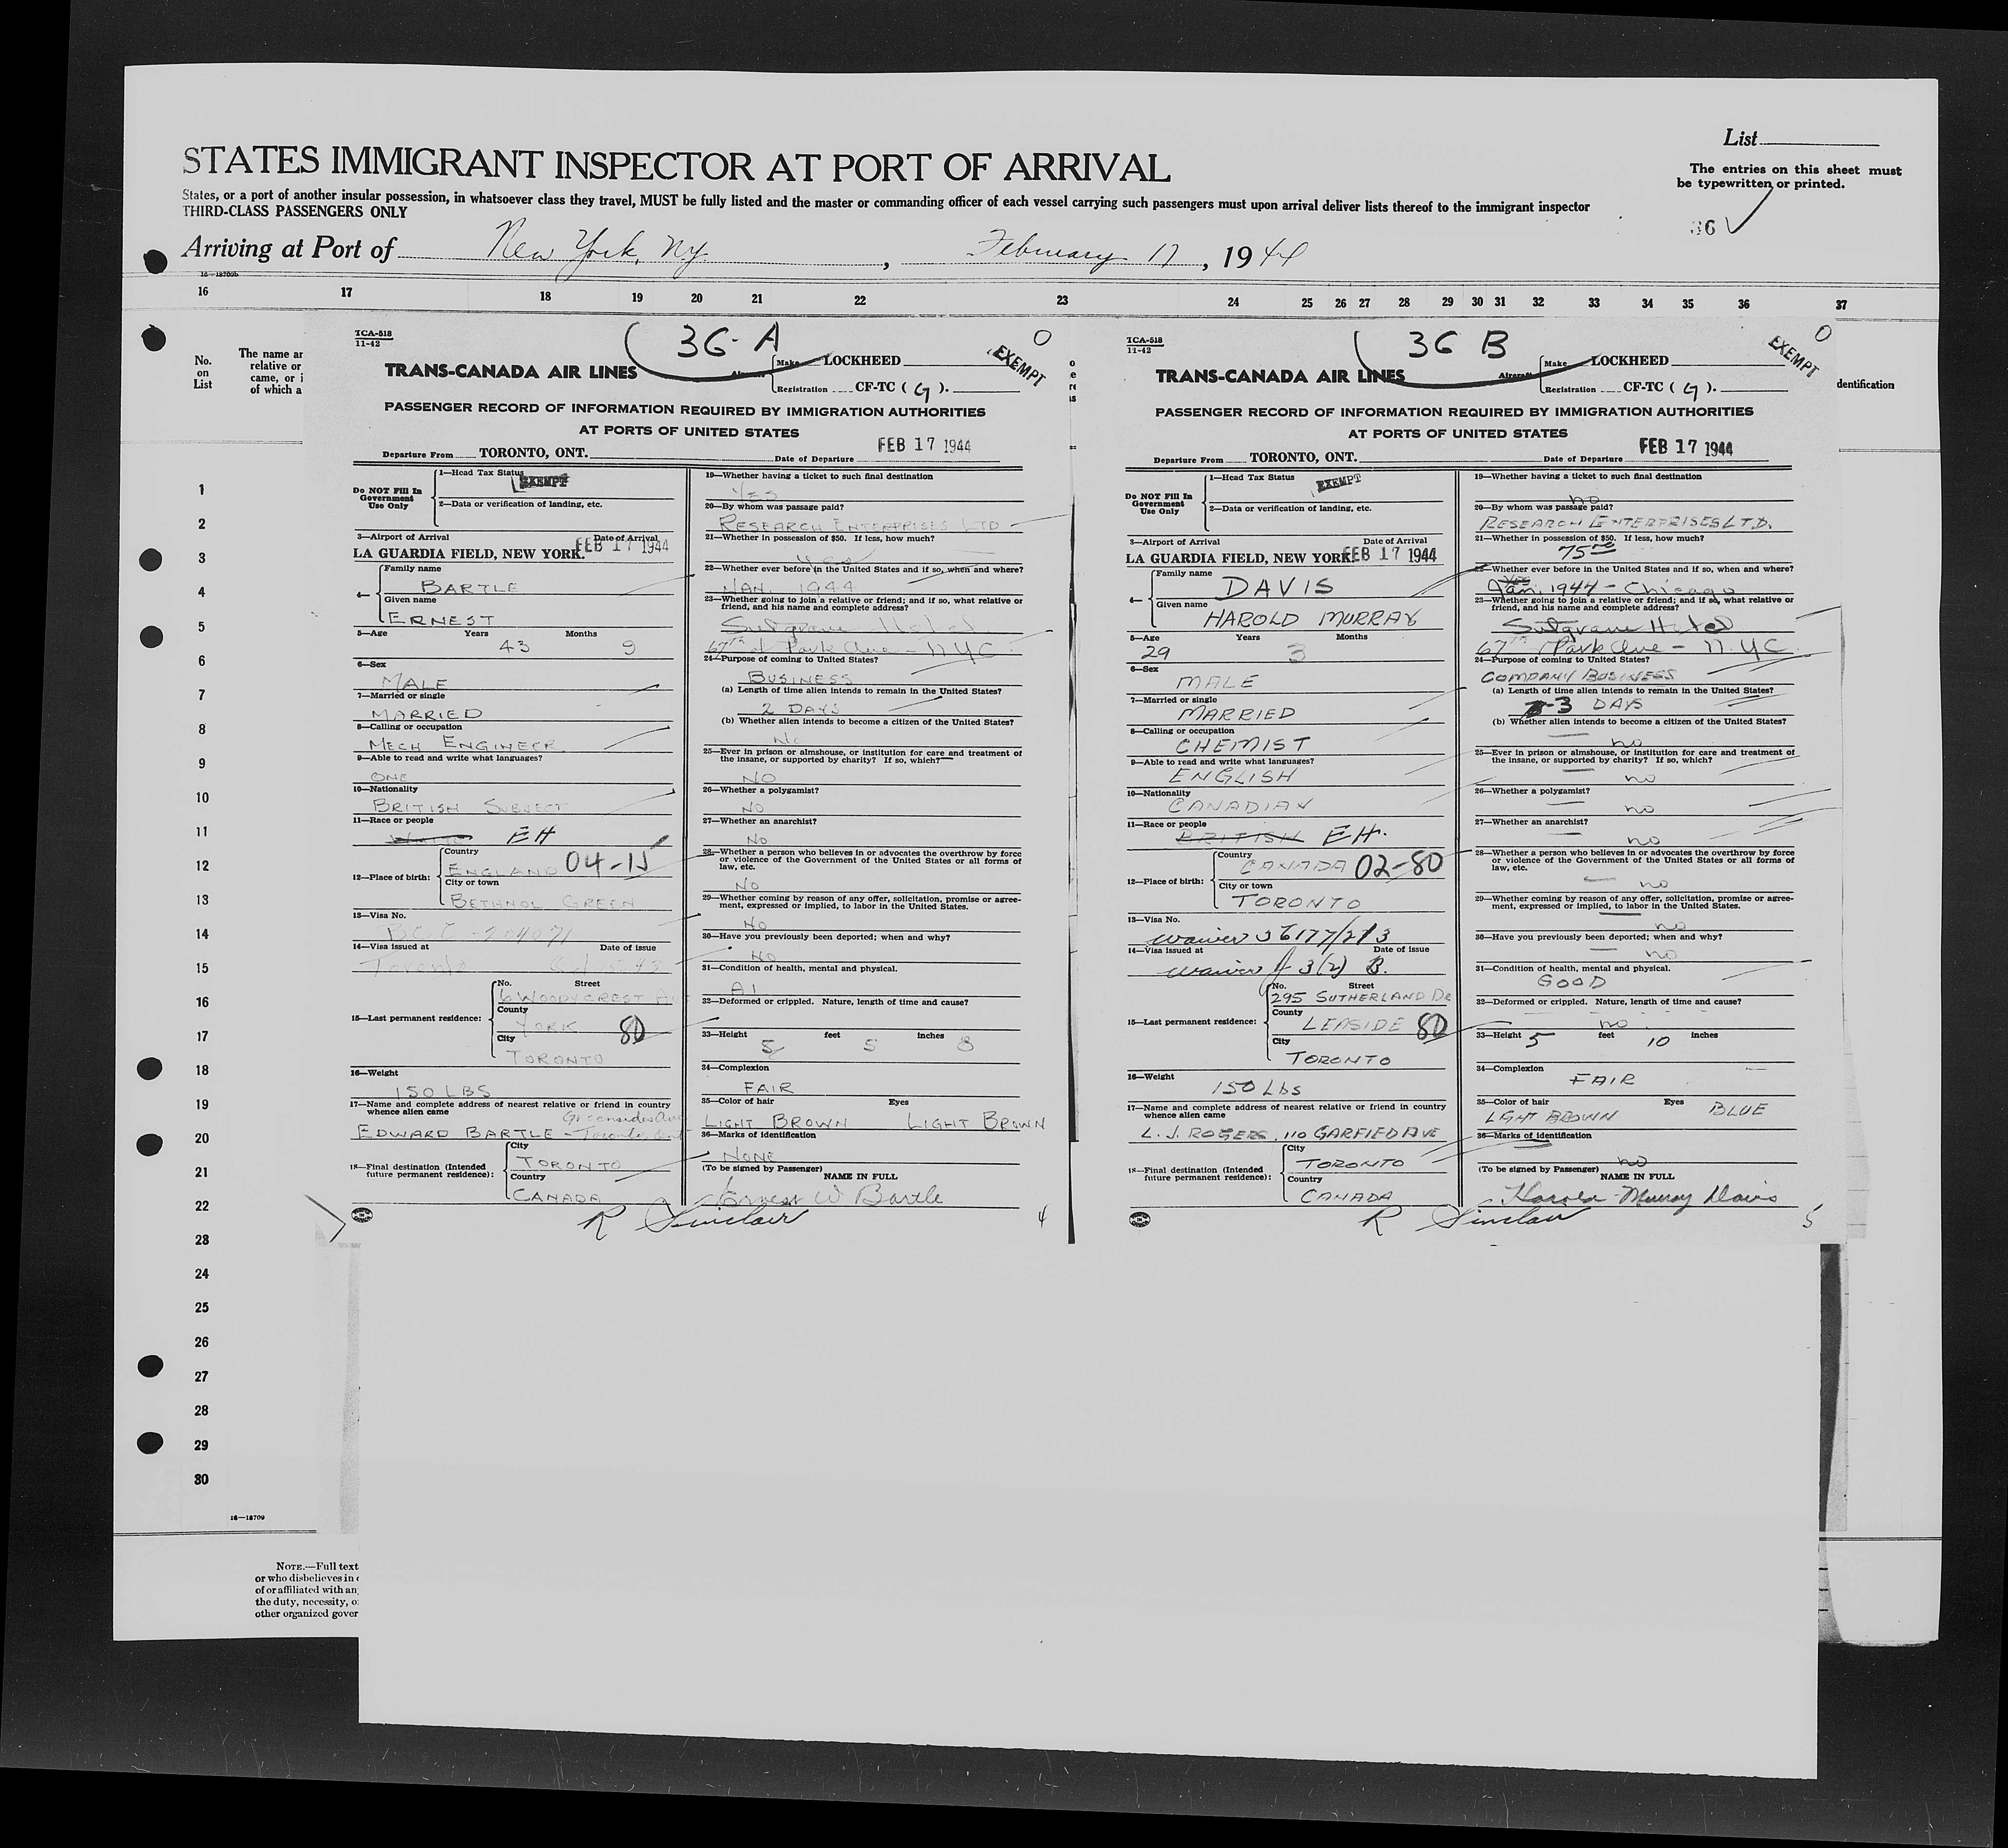 List
The entries on this sheet must
be typewritten or printed.
36
STATES IMMIGRANT INSPECTOR AT PORT OF ARRIVAL
States, or a port of another insular possession, in whatsoever class they travel, MUST be fully listed and the master or commanding officer of each vessel carrying such passengers must upon arrival deliver lists thereof to the immigrant inspector
THIRD-CLASS PASSENGERS ONLY
Arriving at Port of New York, Ny. , February 17, 1944
16—18709b
16 17 18 19 20 21 22 23 24 25 26 27 28 29 30 31 32 33 34 35 36 37
No.
on
List
The name an
relative or
came, or i
of which a
dentification
1
2
3
4
5
6
7
8
9
10
11
12
13
14
15
16
17
18
19
20
21
22
23
24
25
26
27
28
29
30
16—18709
NOTE.—Full text
or who disbelieves in
of or affiliated with an
the duty, necessity, o
other organized gover
TCA-518
11-42
36-A
EXEMPT
TRANS-CANADA AIR LINES
Aircraft
Make LOCKHEED
Registration CF-TC ( G ).
PASSENGER RECORD OF INFORMATION REQUIRED BY IMMIGRATION AUTHORITIES
AT PORTS OF UNITED STATES
Departure From TORONTO, ONT. Date of Departure FEB 17 1944
Do NOT Fill In
Government
Use Only
1—Head Tax Status EXEMPT
2—Data or verification of landing, etc.
3—Airport of Arrival Date of Arrival
LA GUARDIA FIELD, NEW YORK. FEB 17 1944
4—
Family name
BARTLE
Given name
ERNEST
5—Age Years Months
43 9
6—Sex
MALE
7—Married or single
MARRIED
8—Calling or occupation
MECH ENGINEER
9—Able to read and write what languages?
ONE
10—Nationality
BRITISH SUBJECT
11—Race or people
EH
12—Place of birth:
Country
ENGLAND 04-15
City or town
BETHNOL GREEN
13—Visa No.
14—Visa issued at Date of issue
Toronto
15—Last permanent residence:
No. Street
6 WOODYCREST AVE
County
YORK 80
City
TORONTO
16—Weight
150 LBS
17—Name and complete address of nearest relative or friend in country
whence alien came
Greensides Ave
EDWARD BARTLE - Toronto Ont
18—Final destination (Intended
future permanent residence):
City
TORONTO
Country
CANADA
19—Whether having a ticket to such final destination
YES
20—By whom was passage paid?
RESEARCH ENTERPRISES LTD
21—Whether in possession of $50. If less, how much?
Yes
22—Whether ever before in the United States and if so, when and where?
JAN. 1944
23—Whether going to join a relative or friend; and if so, what relative or
friend, and his name and complete address?
Sulgrave Hotel
67th & Park Ave - N.Y.C.
24—Purpose of coming to United States?
BUSINESS
(a) Length of time alien intends to remain in the United States?
2 DAYS
(b) Whether alien intends to become a citizen of the United States?
No
25—Ever in prison or almshouse, or institution for care and treatment of
the insane, or supported by charity? If so, which?
NO
26—Whether a polygamist?
NO
27—Whether an anarchist?
NO
28—Whether a person who believes in or advocates the overthrow by force
or violence of the Government of the United States or all forms of
law, etc.
No
29—Whether coming by reason of any offer, solicitation, promise or agree-
ment, expressed or implied, to labor in the United States.
No
30—Have you previously been deported; when and why?
NO
31—Condition of health, mental and physical.
A1
32—Deformed or crippled. Nature, length of time and cause?
33—Height feet inches
5 5 8
34—Complexion
FAIR
35—Color of hair Eyes
LIGHT BROWN LIGHT BROWN
36—Marks of identification
NONE
(To be signed by Passenger) NAME IN FULL
Ernest W Bartle
R Sinclair
4
TCA-518
11-42
36 B
EXEMPT
TRANS-CANADA AIR LINES
Aircraft
Make LOCKHEED
Registration CF-TC ( G ).
PASSENGER RECORD OF INFORMATION REQUIRED BY IMMIGRATION AUTHORITIES
AT PORTS OF UNITED STATES
Departure From TORONTO, ONT. Date of Departure FEB 17 1944
Do NOT Fill In
Government
Use Only
1—Head Tax Status EXEMPT
2—Data or verification of landing, etc.
3—Airport of Arrival Date of Arrival
LA GUARDIA FIELD, NEW YORK. FEB 17 1944
4—
Family name
DAVIS
Given name
HAROLD MURRAY
5—Age Years Months
29 3
6—Sex
MALE
7—Married or single
MARRIED
8—Calling or occupation
CHEMIST
9—Able to read and write what languages?
ENGLISH
10—Nationality
CANADIAN
11—Race or people
BRITISH EH.
12—Place of birth:
Country
CANADA 02-80
City or town
TORONTO
13—Visa No.
Waiver 56177/213
14—Visa issued at Date of issue
Waiver of 3(2) B.
15—Last permanent residence:
No. Street
295 SUTHERLAND DR
County
LEASIDE 80
City
TORONTO
16—Weight
150 Lbs
17—Name and complete address of nearest relative or friend in country
whence alien came
L. J. ROGERS, 110 GARFIED AVE
18—Final destination (Intended
future permanent residence):
City
TORONTO
Country
CANADA
19—Whether having a ticket to such final destination
no
20—By whom was passage paid?
RESEARCH ENTERPRISES LTD.
21—Whether in possession of $50. If less, how much?
75 00
22—Whether ever before in the United States and if so, when and where?
Yes
Jan. 1944 - Chicago
23—Whether going to join a relative or friend; and if so, what relative or
friend, and his name and complete address?
Sulgrave Hotel
67th & Park Ave - N.Y.C.
24—Purpose of coming to United States?
COMPANY BUSINESS
(a) Length of time alien intends to remain in the United States?
3 DAYS
(b) Whether alien intends to become a citizen of the United States?
no
25—Ever in prison or almshouse, or institution for care and treatment of
the insane, or supported by charity? If so, which?
no
26—Whether a polygamist?
no
27—Whether an anarchist?
no
28—Whether a person who believes in or advocates the overthrow by force
or violence of the Government of the United States or all forms of
law, etc.
no
29—Whether coming by reason of any offer, solicitation, promise or agree-
ment, expressed or implied, to labor in the United States.
no
30—Have you previously been deported; when and why?
no
31—Condition of health, mental and physical.
GOOD
32—Deformed or crippled. Nature, length of time and cause?
no
33—Height feet inches
5 10
34—Complexion
FAIR
35—Color of hair Eyes
LGHT BROWN BLUE
36—Marks of identification
no
(To be signed by Passenger) NAME IN FULL
Harold Murray Davis
R Sinclair
5